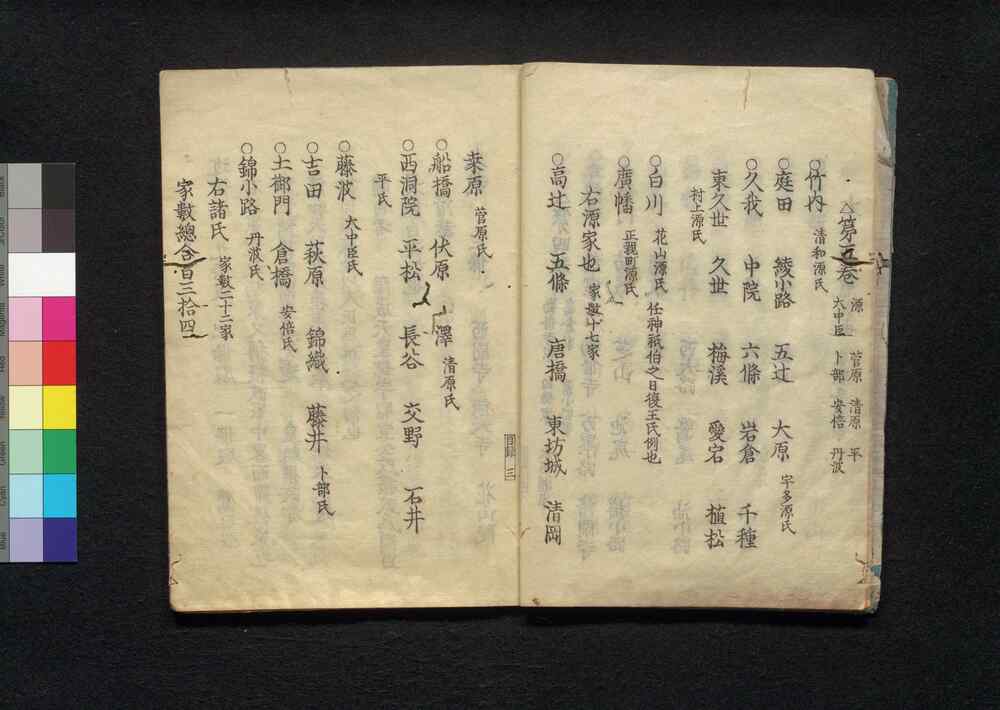 △第五巻 源 菅原 清原 平 大中臣 卜部 安倍 丹波
○竹内 清和源氏
○庭田 綾小路 五辻 大原 宇多源氏
○久我 中院 六條 岩倉 千種
東久世 久世 梅溪 愛宕 植松
村上源氏
○白川 花山源氏 任神祇伯之日復王氏例也
○廣幡 正親町源氏
右源家也 家數十七家
○高辻 五條 唐橋 東坊城 清岡
目録 三
桒原 菅原氏
○船橋 伏原 澤 清原氏
○西洞院 平松 長谷 交野 石井
平氏
○藤波 大中臣氏
○吉田 萩原 錦織 藤井 卜部氏
○土御門 倉橋 安倍氏
○錦小路 丹波氏
右諸氏 家數二十二家
家數總合百三拾四